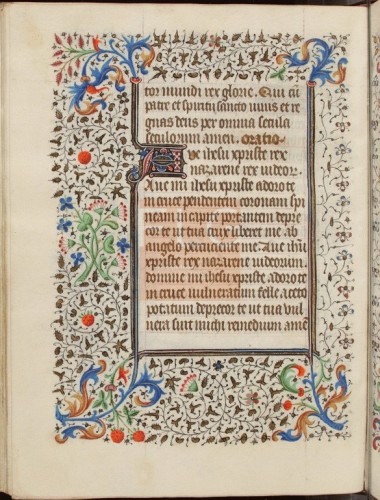 tor mundi rex glorie. Qui cū
patre et spiritu sancto viuis et re
gnas deus per omnia secula
seculorum amen. Oratio
Aue ihesu xpriste rex
nazarene rex iudeor.
Aue mi ihesu xpriste adoro te
in cruce pendentem coronam spi
neam in capite portantem depre
cor te ut tua crux liberet me ab
angelo percutiente me Aue ihū
xpriste rex nazarene iudeorum.
domine mi ihesu xpriste adoro te
in cruce vulneratum felle aceto
potatum deprecor te ut tua vul
nera sint michi remedium amē